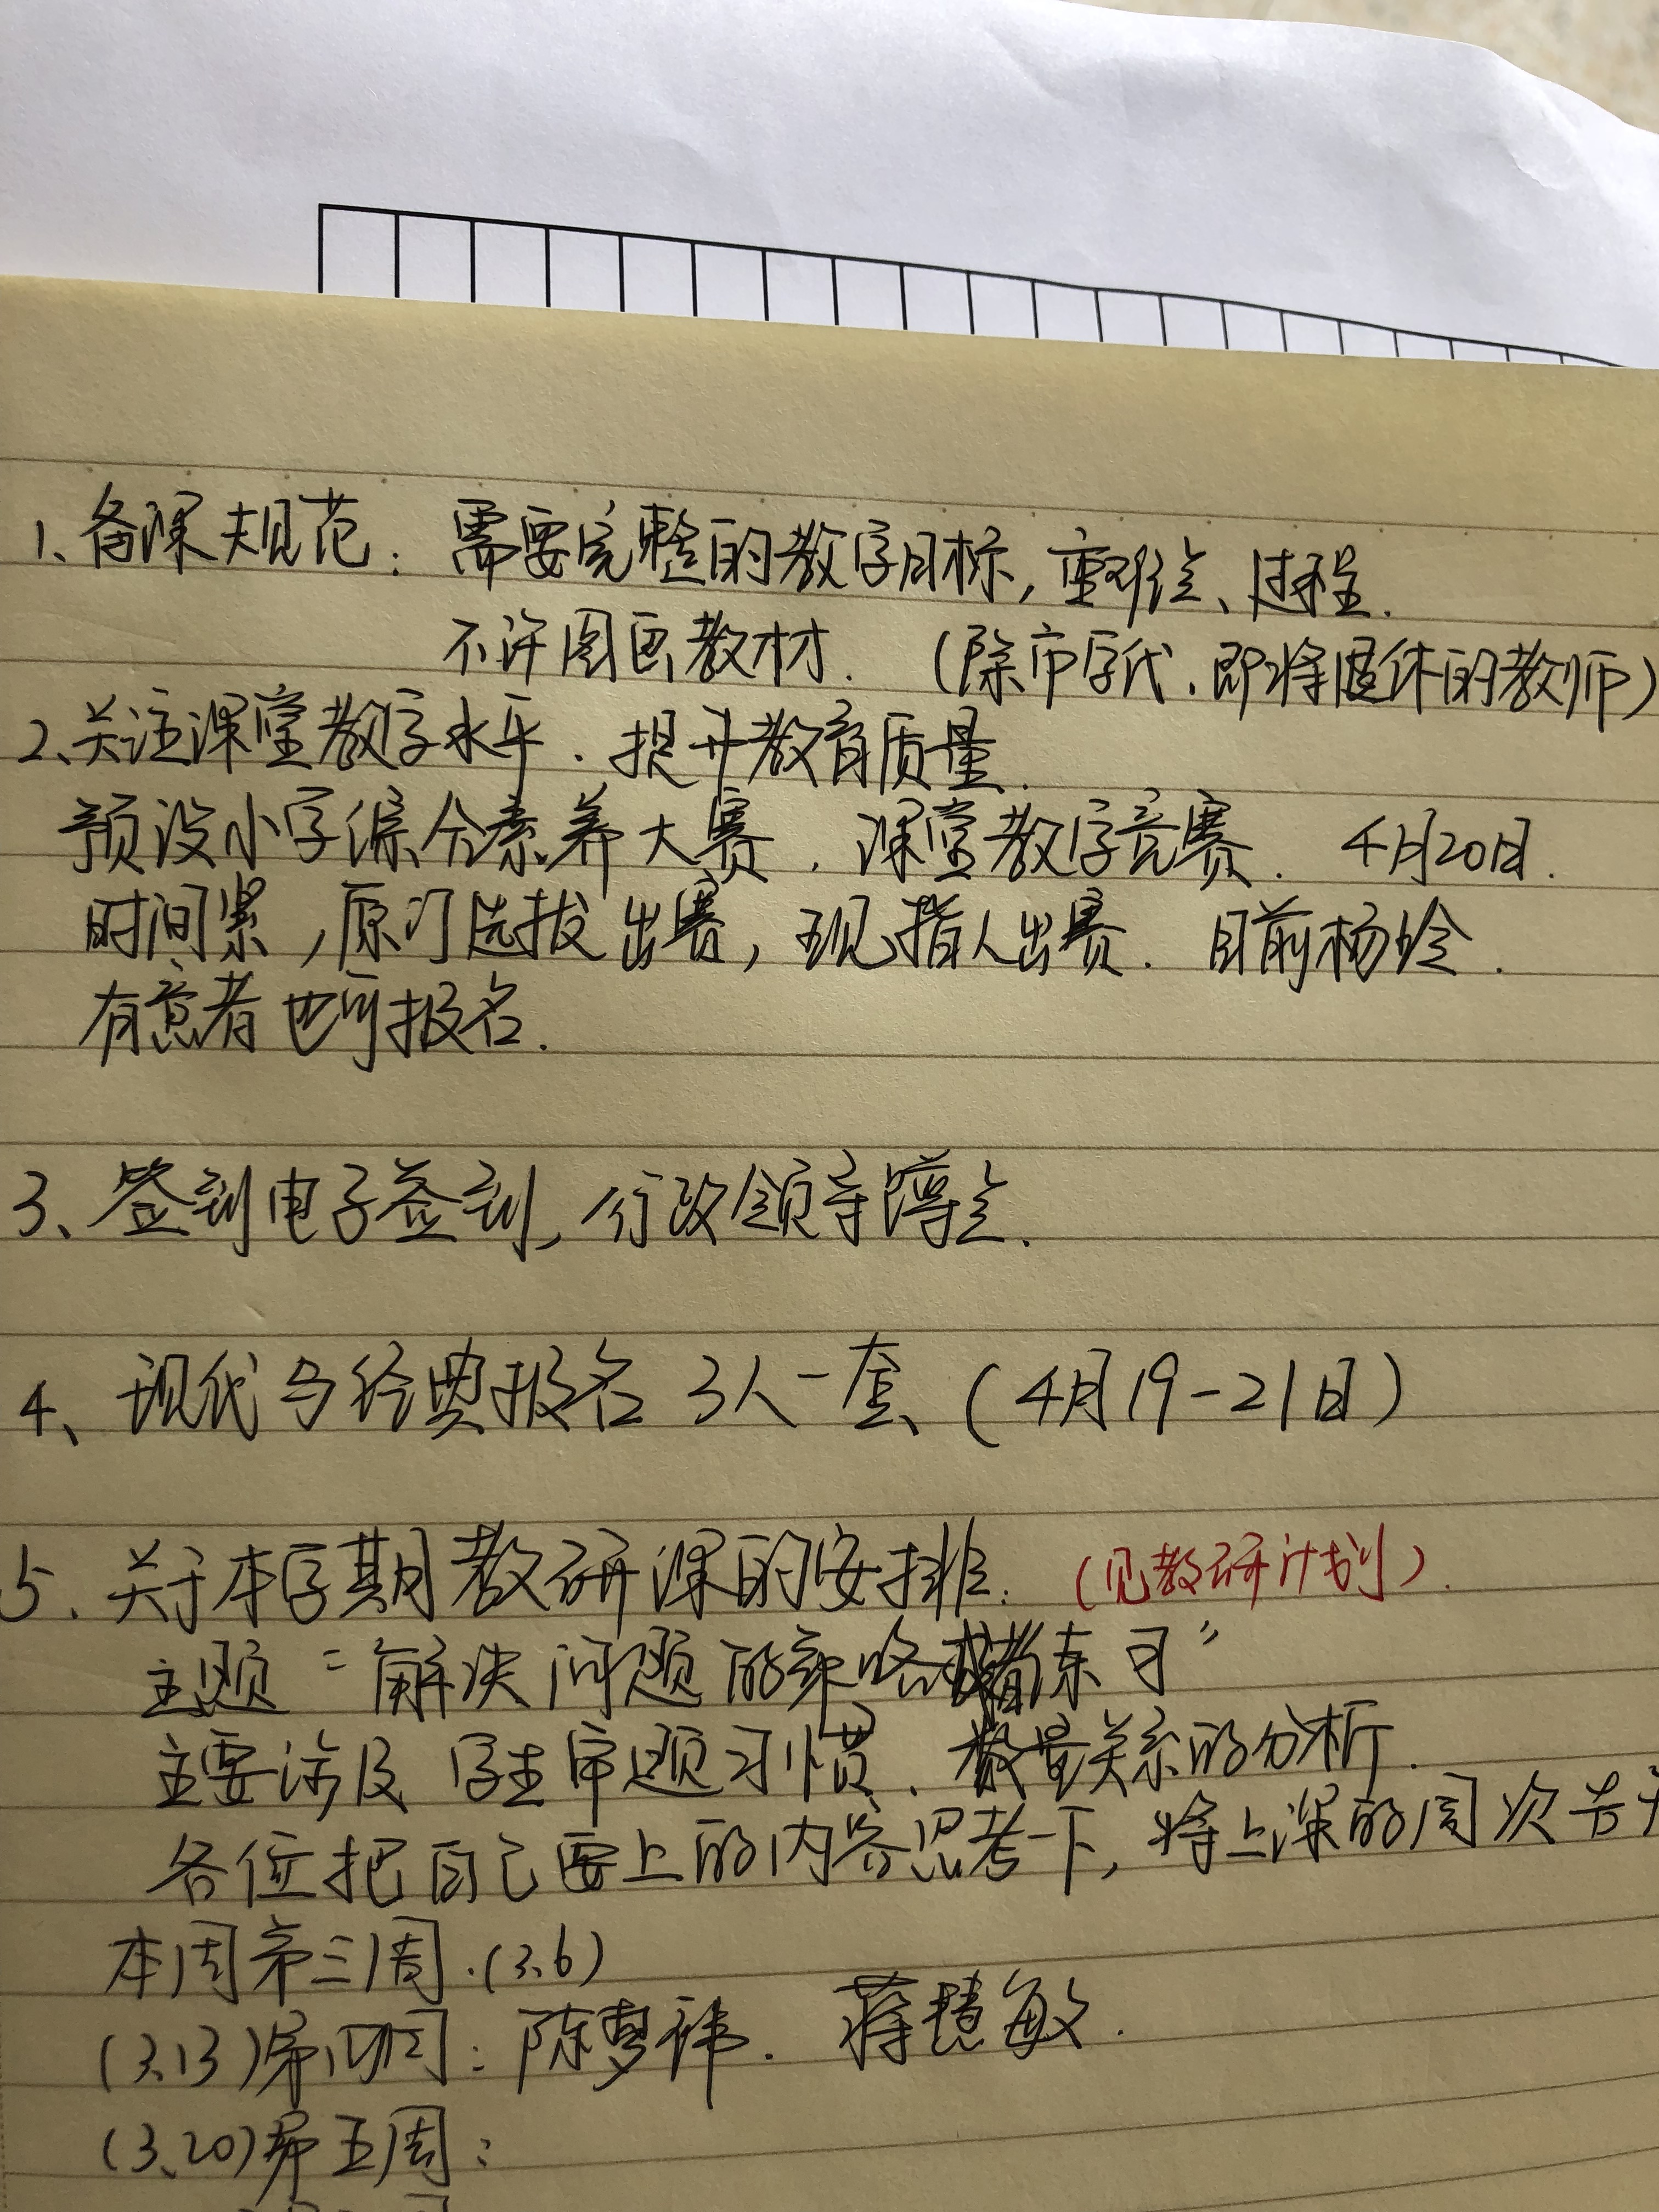 1、备课规范：需要完整的教学目标，重难点、过程.
不许圈画教材.（除市学代、即将退休的教师）
2、关注课堂教学水平.提升教育质量.
预设小学综合素养大赛.课堂教学竞赛.4月20日.
时间紧，原可选拔出赛，现指人出赛.目前杨玲.
有意者也可报名.
3、签到电子签到，行政领导蹲点.
4、现代与经典报名 3人一套（4月19-21日）
5.关于本学期教研课的安排.（见教研计划）.
主题“解决问题的策略或者练习”
主要涉及学生审题习惯.数量关系的分析.
各位把自己要上的内容思考一下，将上课的周次告
本周第三周.(3.6)
(3.13)第四周：陈梦祎.蒋慧敏.
(3.20)第五周：